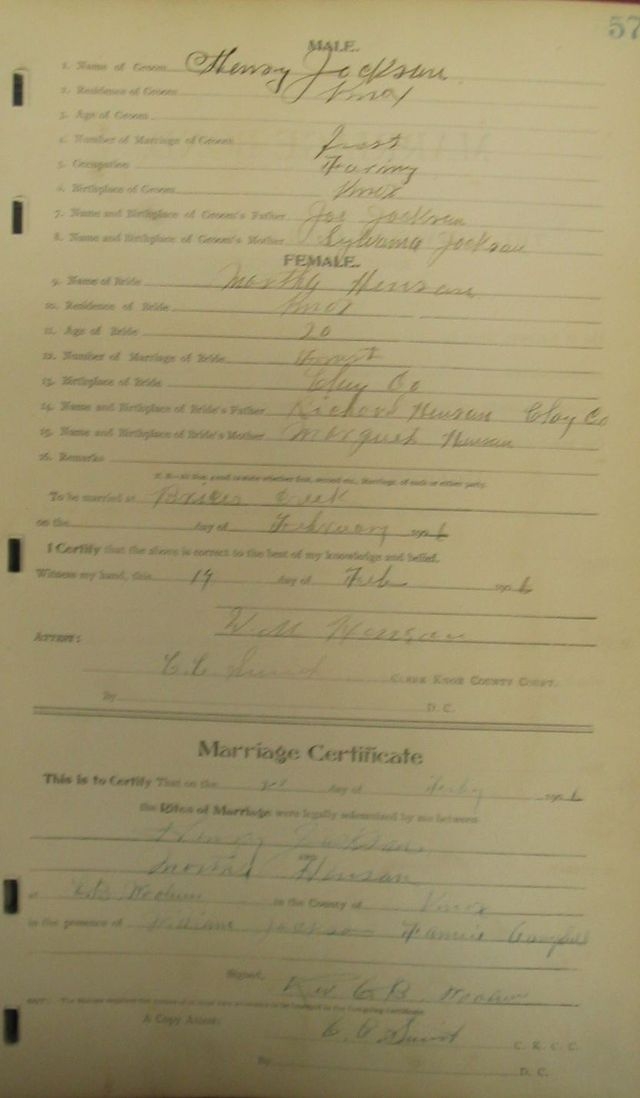 57
MALE.
1. Name of Groom Henry Jackson
2. Residence of Groom Knox
3. Age of Groom
4. Number of Marriage of Groom first
5. Occupation Faring
6. Birthplace of Groom Knox
7. Name and Birthplace of Groom's Father Joe Jackson
8. Name and Birthplace of Groom's Mother Sylvania Jackson
FEMALE.
9. Name of Bride Martha Henson
10. Residence of Bride Knox
11. Age of Bride 20
12. Number of Marriage of Bride
13. Birthplace of Bride Clay Co
14. Name and Birthplace of Bride's Father Richard Henson Clay Co
15. Name and Birthplace of Bride's Mother Margaret Henson
16. Remarks
To be married at Creek
on the day of February 190
I Certify that the above is correct to the best of my knowledge and belief.
Witness my hand, this 19 day of Feb 190
W.M Henson
ATTEST:
CLERK KNOX COUNTY COURT.
By D. C.
Marriage Certificate
This is to Certify That on the day of Feby 190
the Rites of Marriage were legally solemnized by me between
Henry Jackson
and
Martha Henson
at in the County of Knox
in the presence of William Jackson Campbell
Signed, Rev G B
A Copy Attest: C. K. C. C.
By D. C.